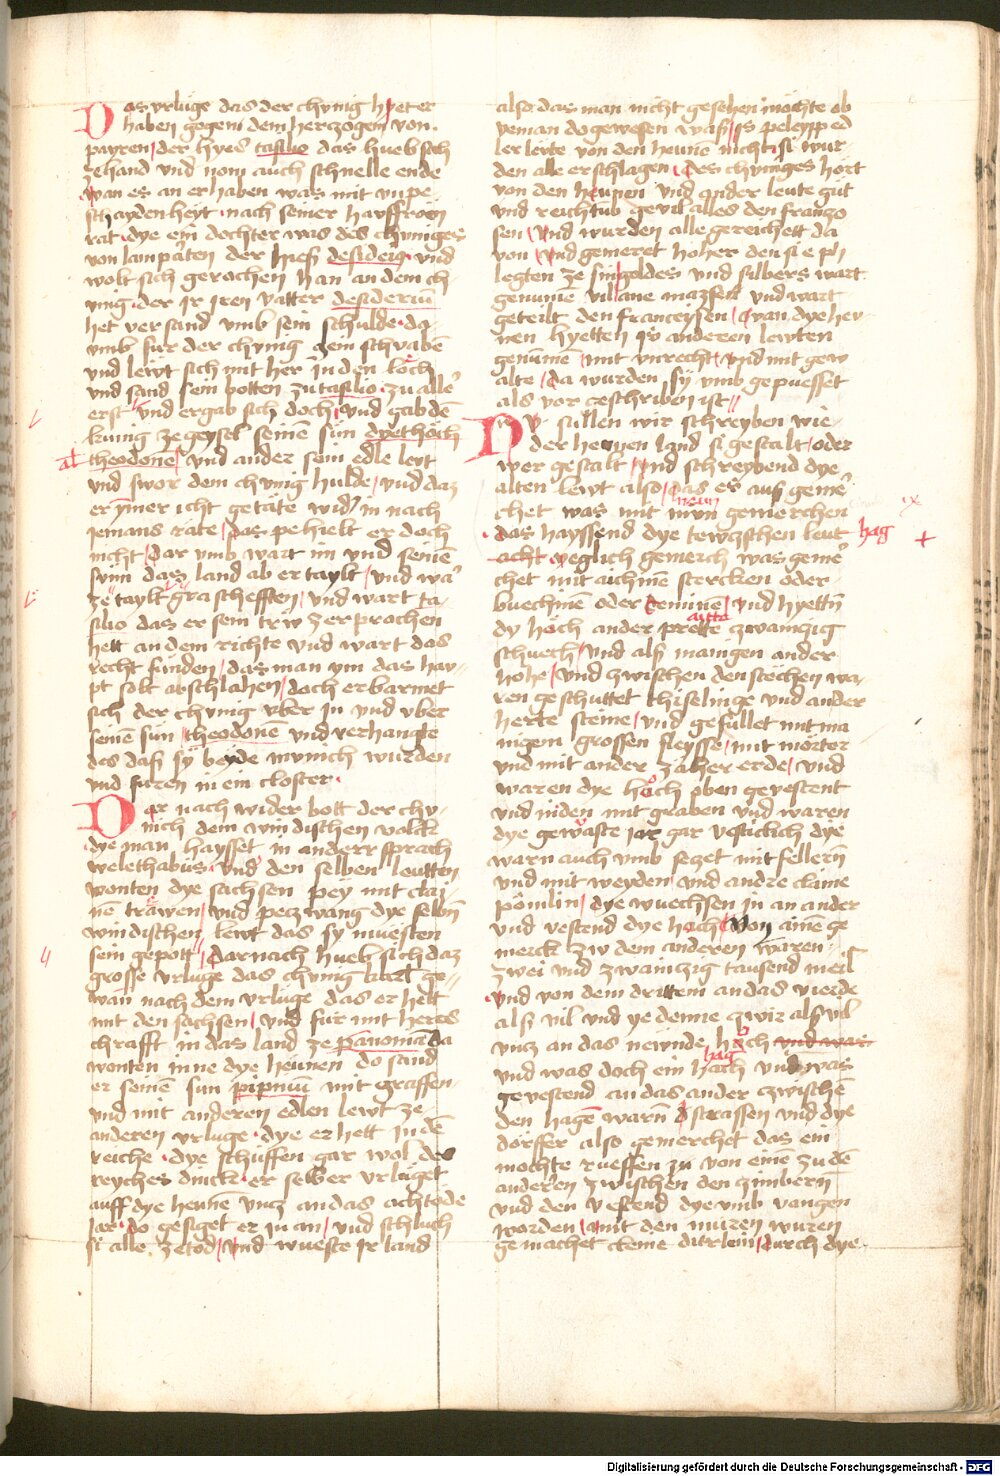 Das vrluge das der chunig hyeter
haben gegem dem herczogen von
payren der hyes tasilio das hueb sich
zehand vnd nom auch schnelle ende
wan es an erhaben was mit vnpe
schayden heyt nach seiner hawsfrown
rat dye ein dochter was des chuniges
von lamparten der hieß desiderig vnd
wolt sich gerochen han an dem ch
unig der ir iren vatter desideriū
het versand vmb sein schulde da
vmb fur der chunig gein schwabē
vnd lewt sich mit her in den loch
vnd sand sein botten zu tasilio zu alle
erst vnd ergab sich doch vnd gab dē
kunig ze geysel seinē sun dyethoch
al theodonē vnd ander sein edle lewt
vnd swor dem chunig hulde vnd daz
er ymer icht getäte wid in nach
iemans räte das pehielt er doch
nicht dar vmb wart im vnd seinē
sunn daz land ab ertaylt vnd wa
ze taylt graschefften vnd wart ta
silio das er sein trw zerprochen
hett an dem richte vnd wart das
recht funden das man ym das haw
pt solt abschlahen doch erbarmet
sich der chunig vber in vnd vber
seinē sun theodonē vnd verhangte
des daß sy beyde munich wurden
vnd furen in ein closter
Dar nach wider bott der chu
nich dem windischen volkk
dye man haysset in anderr sprach
welethabus vnd den selben leutten
wonten dye sachsen pey mit clai
nē trawen vnd peczwang dye selbn
windischen lewt das sy muesten
sein gepott darnach hueb sich daz
grosse vrluge das chunig karl ge
wan nach dem vrluge das er hett
mit den sachsen vnd fur mit heres
chrafft in das land ze panoniā da
wonten inne dye heunen do sand
er seinen sun pipinū mit graffen
vnd mit anderen edlen lewt ze
anderen vrluge dye er hett in dē
reiche dye schuffen gar wol des
reyches dinck er selber vrluget
auff dye heunē vncz an das achtede
jar do gesiget er in an vnd schluch
si alle ze tod vnd wueste ir land
also das man nicht gesehen mochte ob
yeman do gewesen waß is peleypp ed
ler lewte von den heunē nicht si wur
den alle erschlagen des chuniges hort
von den heunen vnd ander leute gut
vnd reichtub gevil alles den franczo
sen vnd wurden alle gereichett da
von vnd gemeret hoher den si e ph
legten ze sin goldes vnd silbers wart
genumē vil ane mazsen vnd wart
geteilt den franceysen wan dye heu
nen hyetten is anderen lewten
genumē mit vnrecht vnd mit gew
alte da wurden sy vmb gepuesset
als vor geschriben ist
Nw sullen wir schreyben wie
der heunen land si gestalt oder
wer gestalt vnd schreybend dye
alten lewt also das es auß geme
chet was mit neun gemerchen
das hayssend dye tewtschen leut hag
acht yeglich gemerch was geme
chet mit aichinē stercken oder
buechinē oder teminē vnd hyettn
dy hoch ander prette czwainczig
schuech vnd alß manigen ander
hohe vnd zwischen den stechen wa
ren geschuttet chiselinge vnd ander
herte steine vnd gefullet mit ma
nigem grossen fleysse mit morter
vnd mit ander zaher erde vnd
waren dye hoch oben gevestent
vnd niden mit graben vnd waren
dye gewäste jar gar vesticlich dye
warn auch vmb seczet mit fellerin
vnd mit weyden vnd andre claine
pömlin dye wuechsen in an ander
vnd vestend dye hach von ainē ge
merck zw dem anderen waren
zwei vnd zwainczig tausend meil
vnd von dem drittem an das vierde
alß vil vnd ye denne zwir alß vil
vncz an das neunde hoch vnd was
vnd was doch ein hag vnd was
gevestend an das ander czwischē
den hagē warn d strassen vnd dye
dörffer also gemerchet das ein
mochte rueffen zu von einē zu dē
anderen zwischen den czimbern
vnd den vestend dye vmb vangen
worden mit den muren wuren
gemachet cleine dürlein durch dye